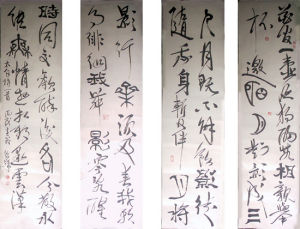 花间一壶酒独酌無相親舉
杯邀明月對影成三
人月既不解飲影徒
隨我身暫伴月將
影行樂須及春我歌
月徘徊我舞影零亂醒
時同交歡醉後各分散永
結無情遊相期邈雲漢